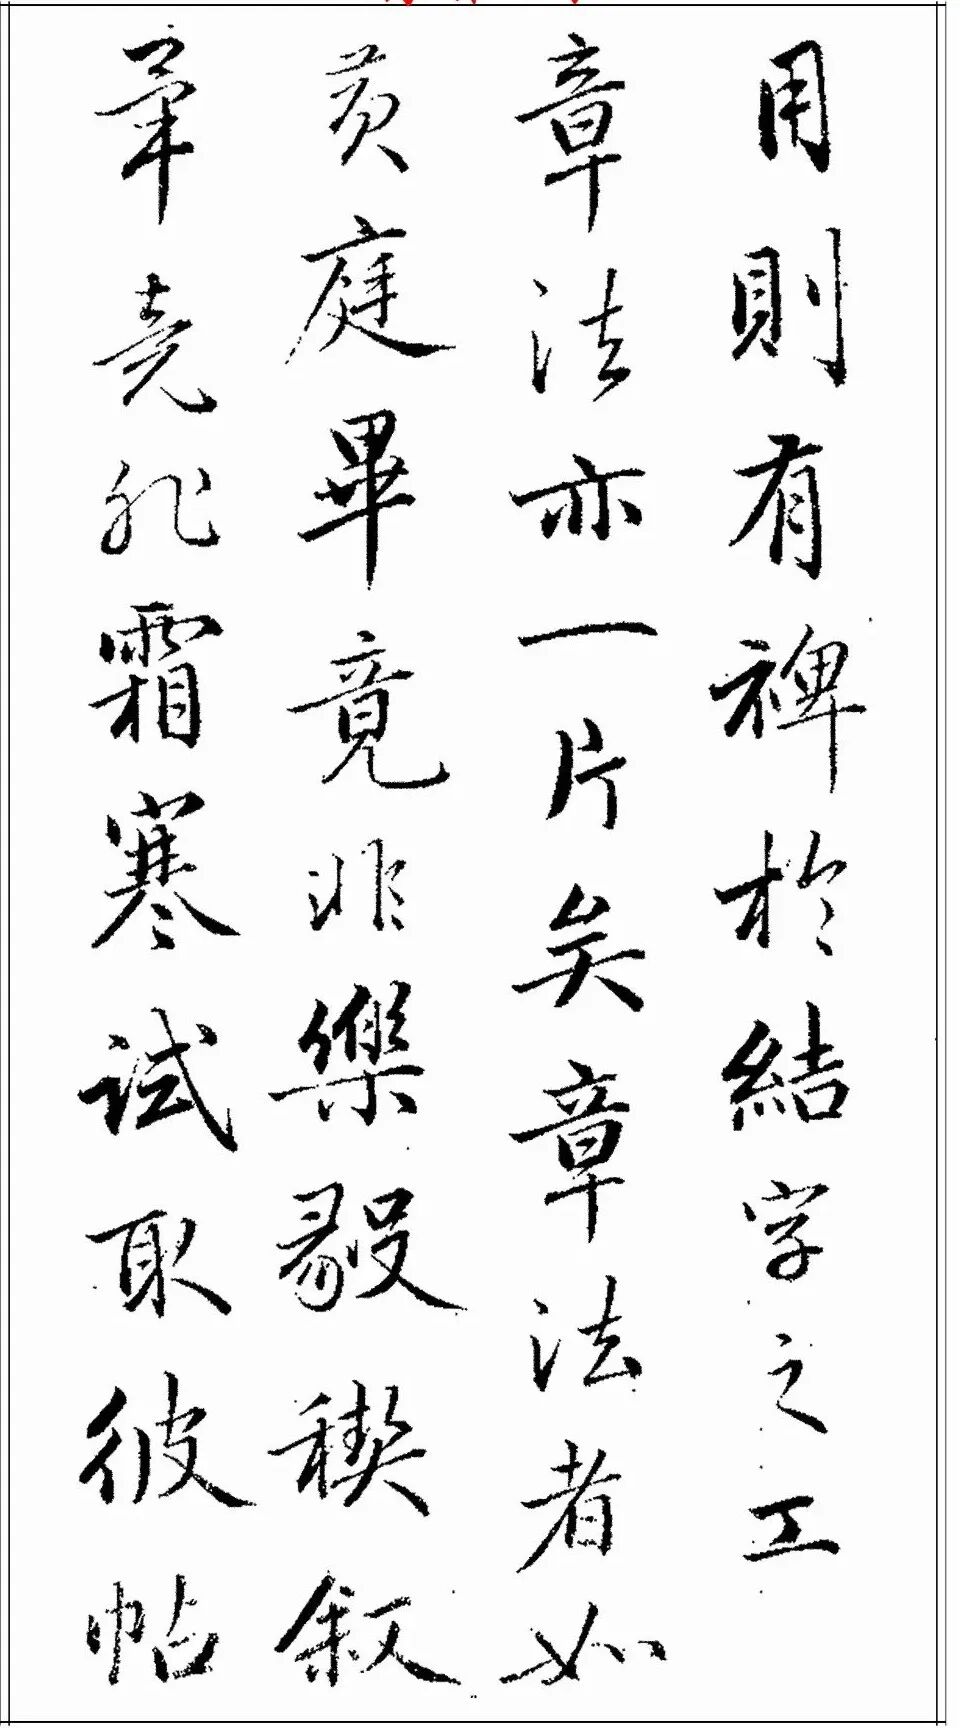 用則有裨於結字之工
章法亦一片矣章法者如
黃庭畢竟非樂毅禊敘
筆竟非霜寒試取彼帖